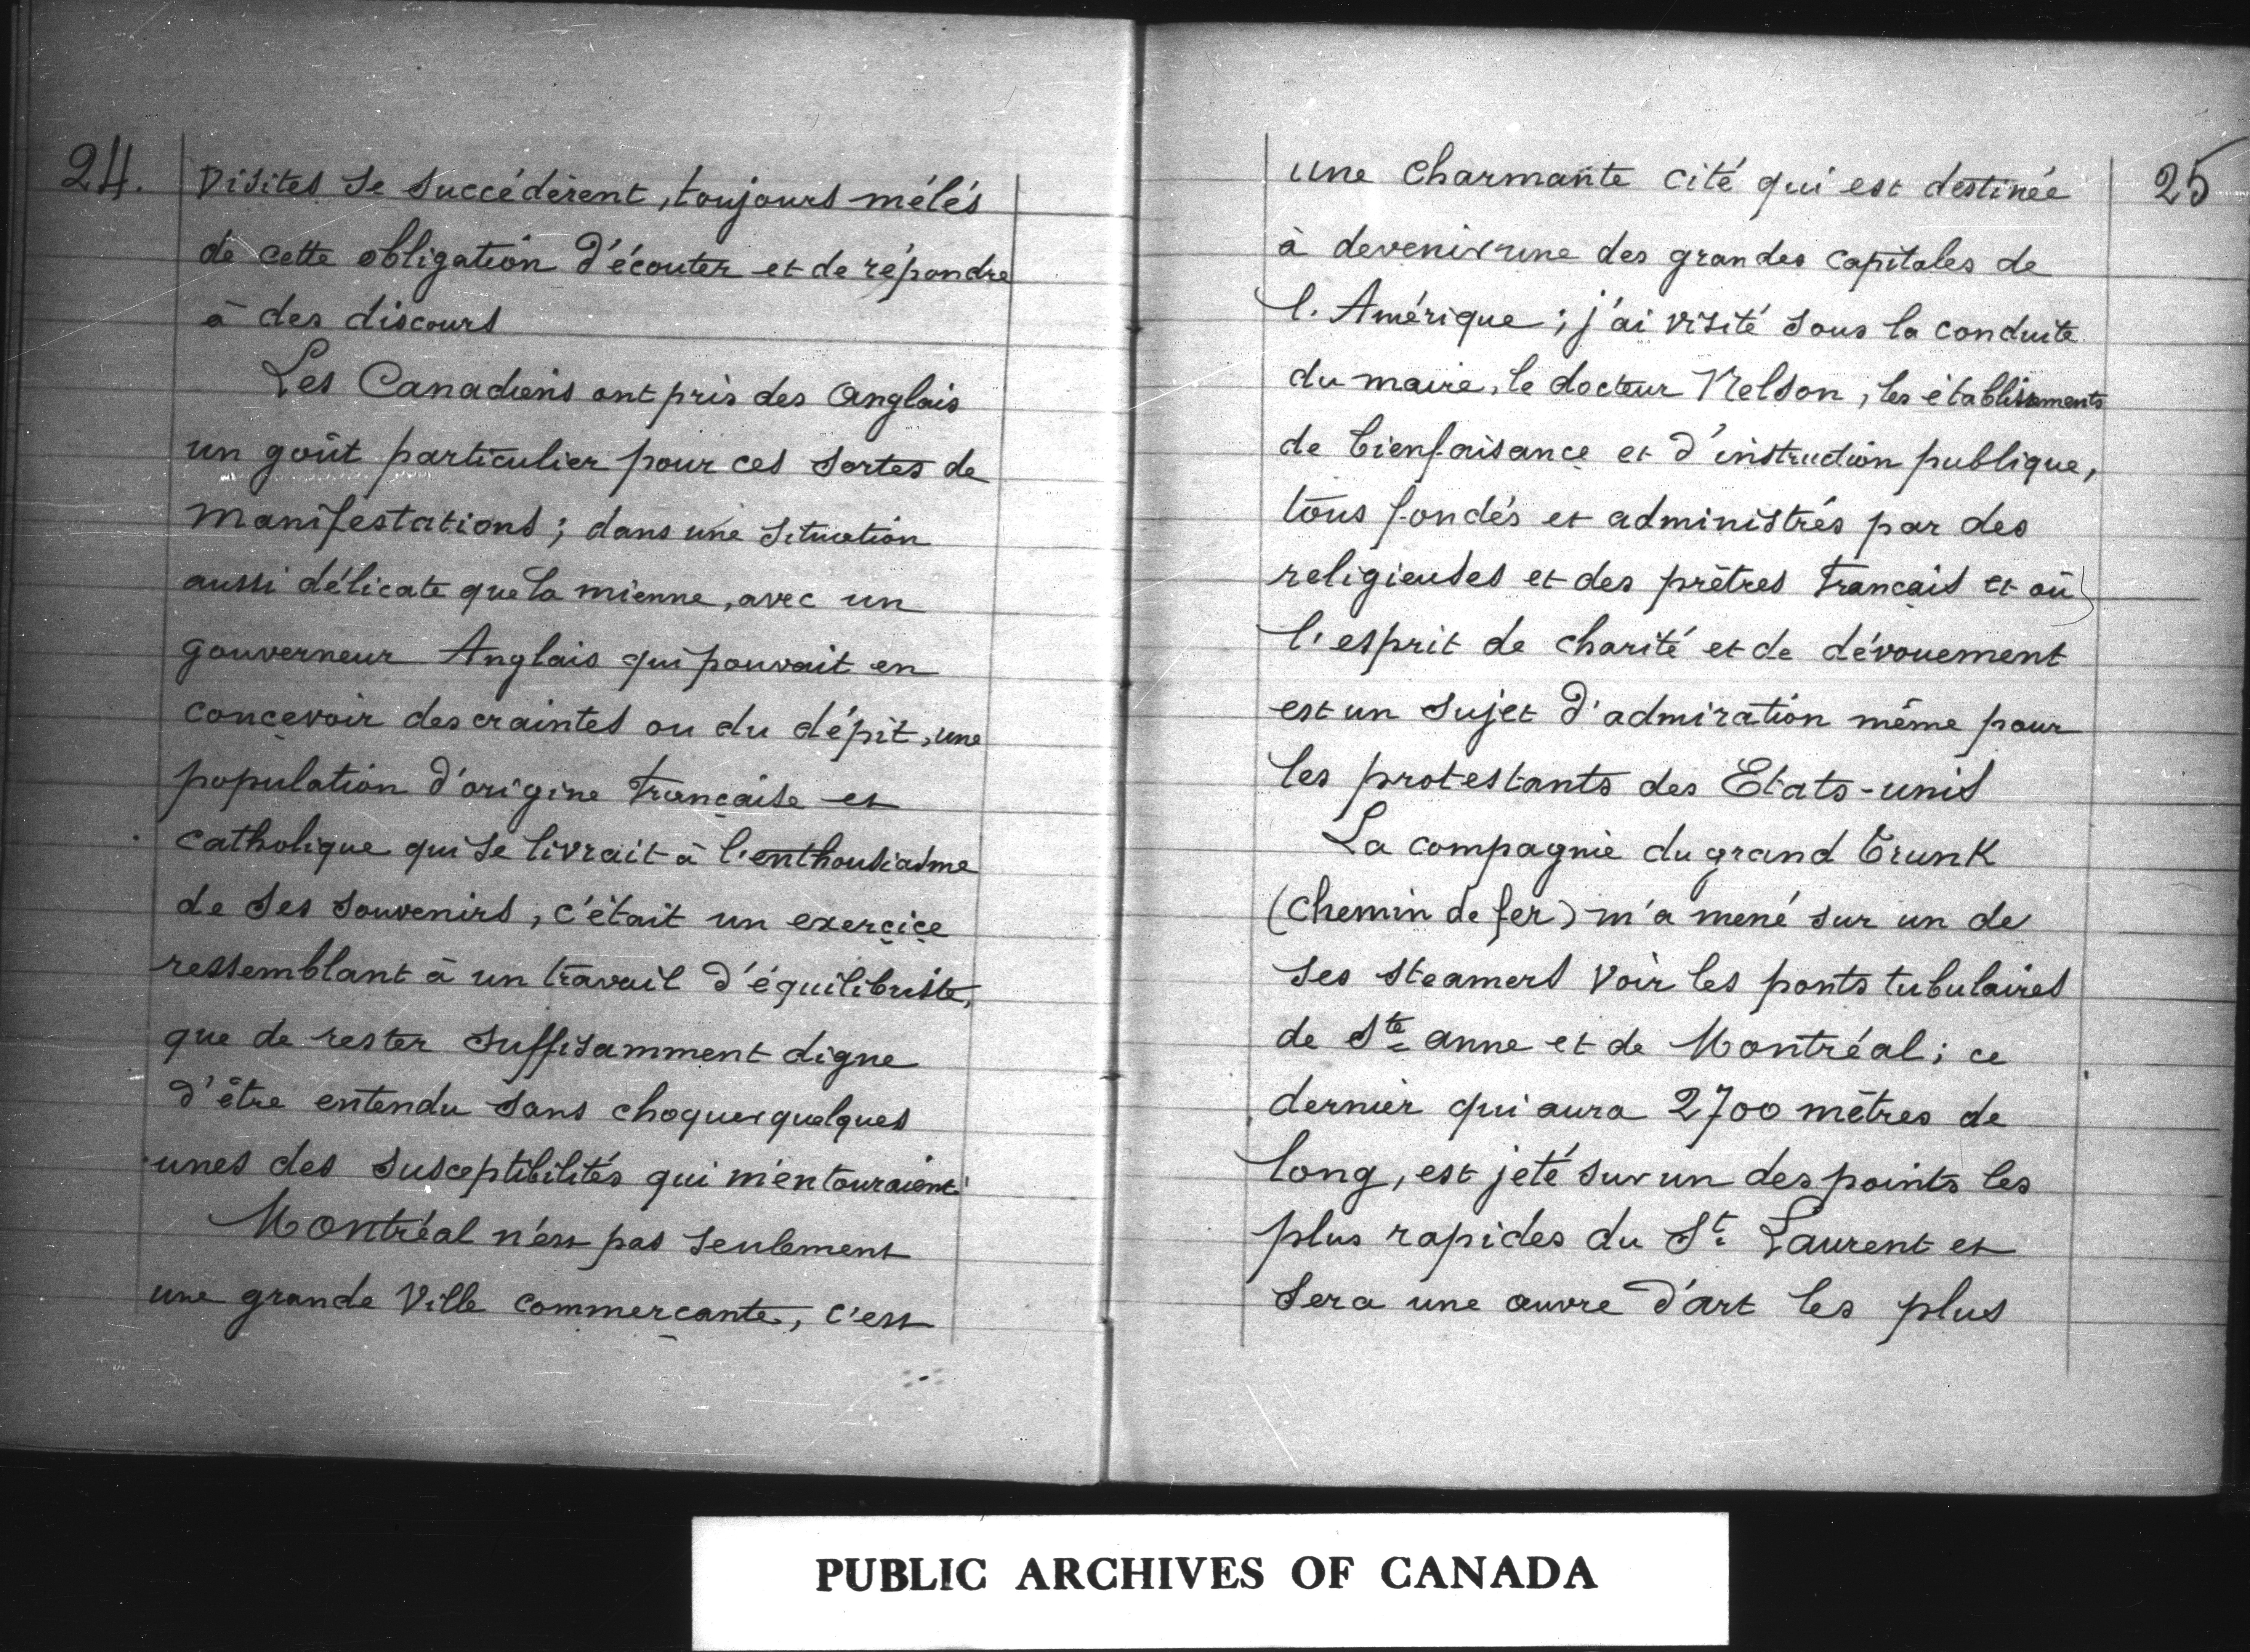 24.
Visites se succédèrent, toujours mélés
de cette obligation d'écouter et de répondre
à des discours
Les Canadiens ont pris des Anglais
un goût particulier pour ces sortes de
manifestations ; dans une situation
aussi délicate que la mienne, avec un
gouverneur Anglais qui pouvait en
concevoir des craintes ou du dépit, une
population d'origine Française et
catholique qui se livrait à l'enthousiasme
de ses souvenirs, c'était un exercice
ressemblant à un travail d'équilibriste,
que de rester suffisamment digne
d'être entendu sans choquer quelques
unes des susceptibilités qui m'entouraient
Montréal n'est pas seulement
une grande Ville commerçante, c'est
25
une charmante cité qui est destinée
à devenir une des grandes capitales de
l'Amérique ; j'ai visité sous la conduite
du maire, le docteur Nelson, les établissements
de bienfaisance et d'instruction publique,
tous fondés et administrés par des
religieuses et des prêtres Français et où
l'esprit de charité et de dévouement
est un sujet d'admiration même pour
les protestants des Etats-unis
La compagnie du grand Trunk
(chemin de fer) m'a mené sur un de
ses steamers voir les ponts tubulaires
de Ste anne et de Montréal ; ce
dernier qui aura 2700 mètres de
long, est jeté sur un des points les
plus rapides du St Laurent et
sera une œuvre d'art les plus
PUBLIC ARCHIVES OF CANADA